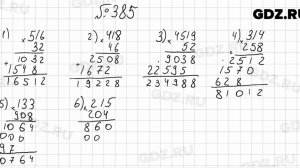 № 385
GDZ.RU
1) ×516
32
1032
+1548
16512
2) ×418
46
2508
+1672
19228
3) ×4519
52
9038
22595
234988
4) ×314
258
2512
1570
628
81012
5) ×133
908
1064
000
97
20764
6) ×215
204
860
00